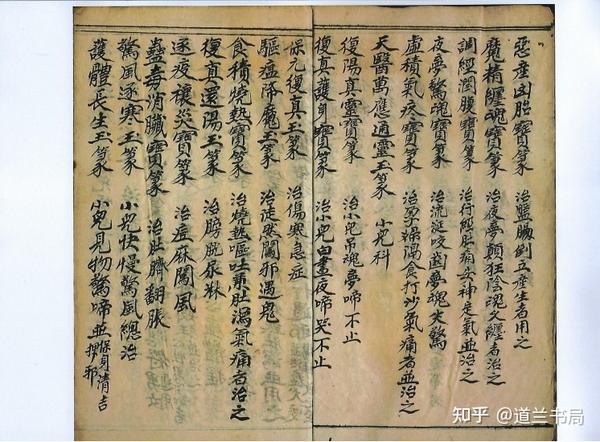 惡產凶胎寶篆 治盤腸倒立產生者用之
魔精纏魂寶篆 治夜夢顛狂陰魂交纏者治之
調經潤腹寶篆 治行經肚痛安神定氣並治之
夜夢驚魂寶篆 治流涎咬齒夢魂失驚
虛積氣疼寶篆 治孕婦隔食打炒氣痛者並治之
天醫萬應通靈玉篆 小兒科
復陽真靈寶篆 治小兒吊魂夢啼不止
復真護身寶篆 治小兒白晝夜啼哭不止
保元復真玉篆 治傷寒急症
驅瘟降魔玉篆 治徒然闖邪遇鬼
食積燒熱寶篆 治燒熱嘔吐兼肚瀉氣痛者治之
復真還陽玉篆 治膀胱尿淋
逐疫禳災寶篆 治痘麻闖風
蠱毒消臟寶篆 治肚臍翻脹
驚風逐寒玉篆 小兒快慢驚風總治
護體長生玉篆 小兒見物驚啼並保身清吉
知乎 @道兰书局